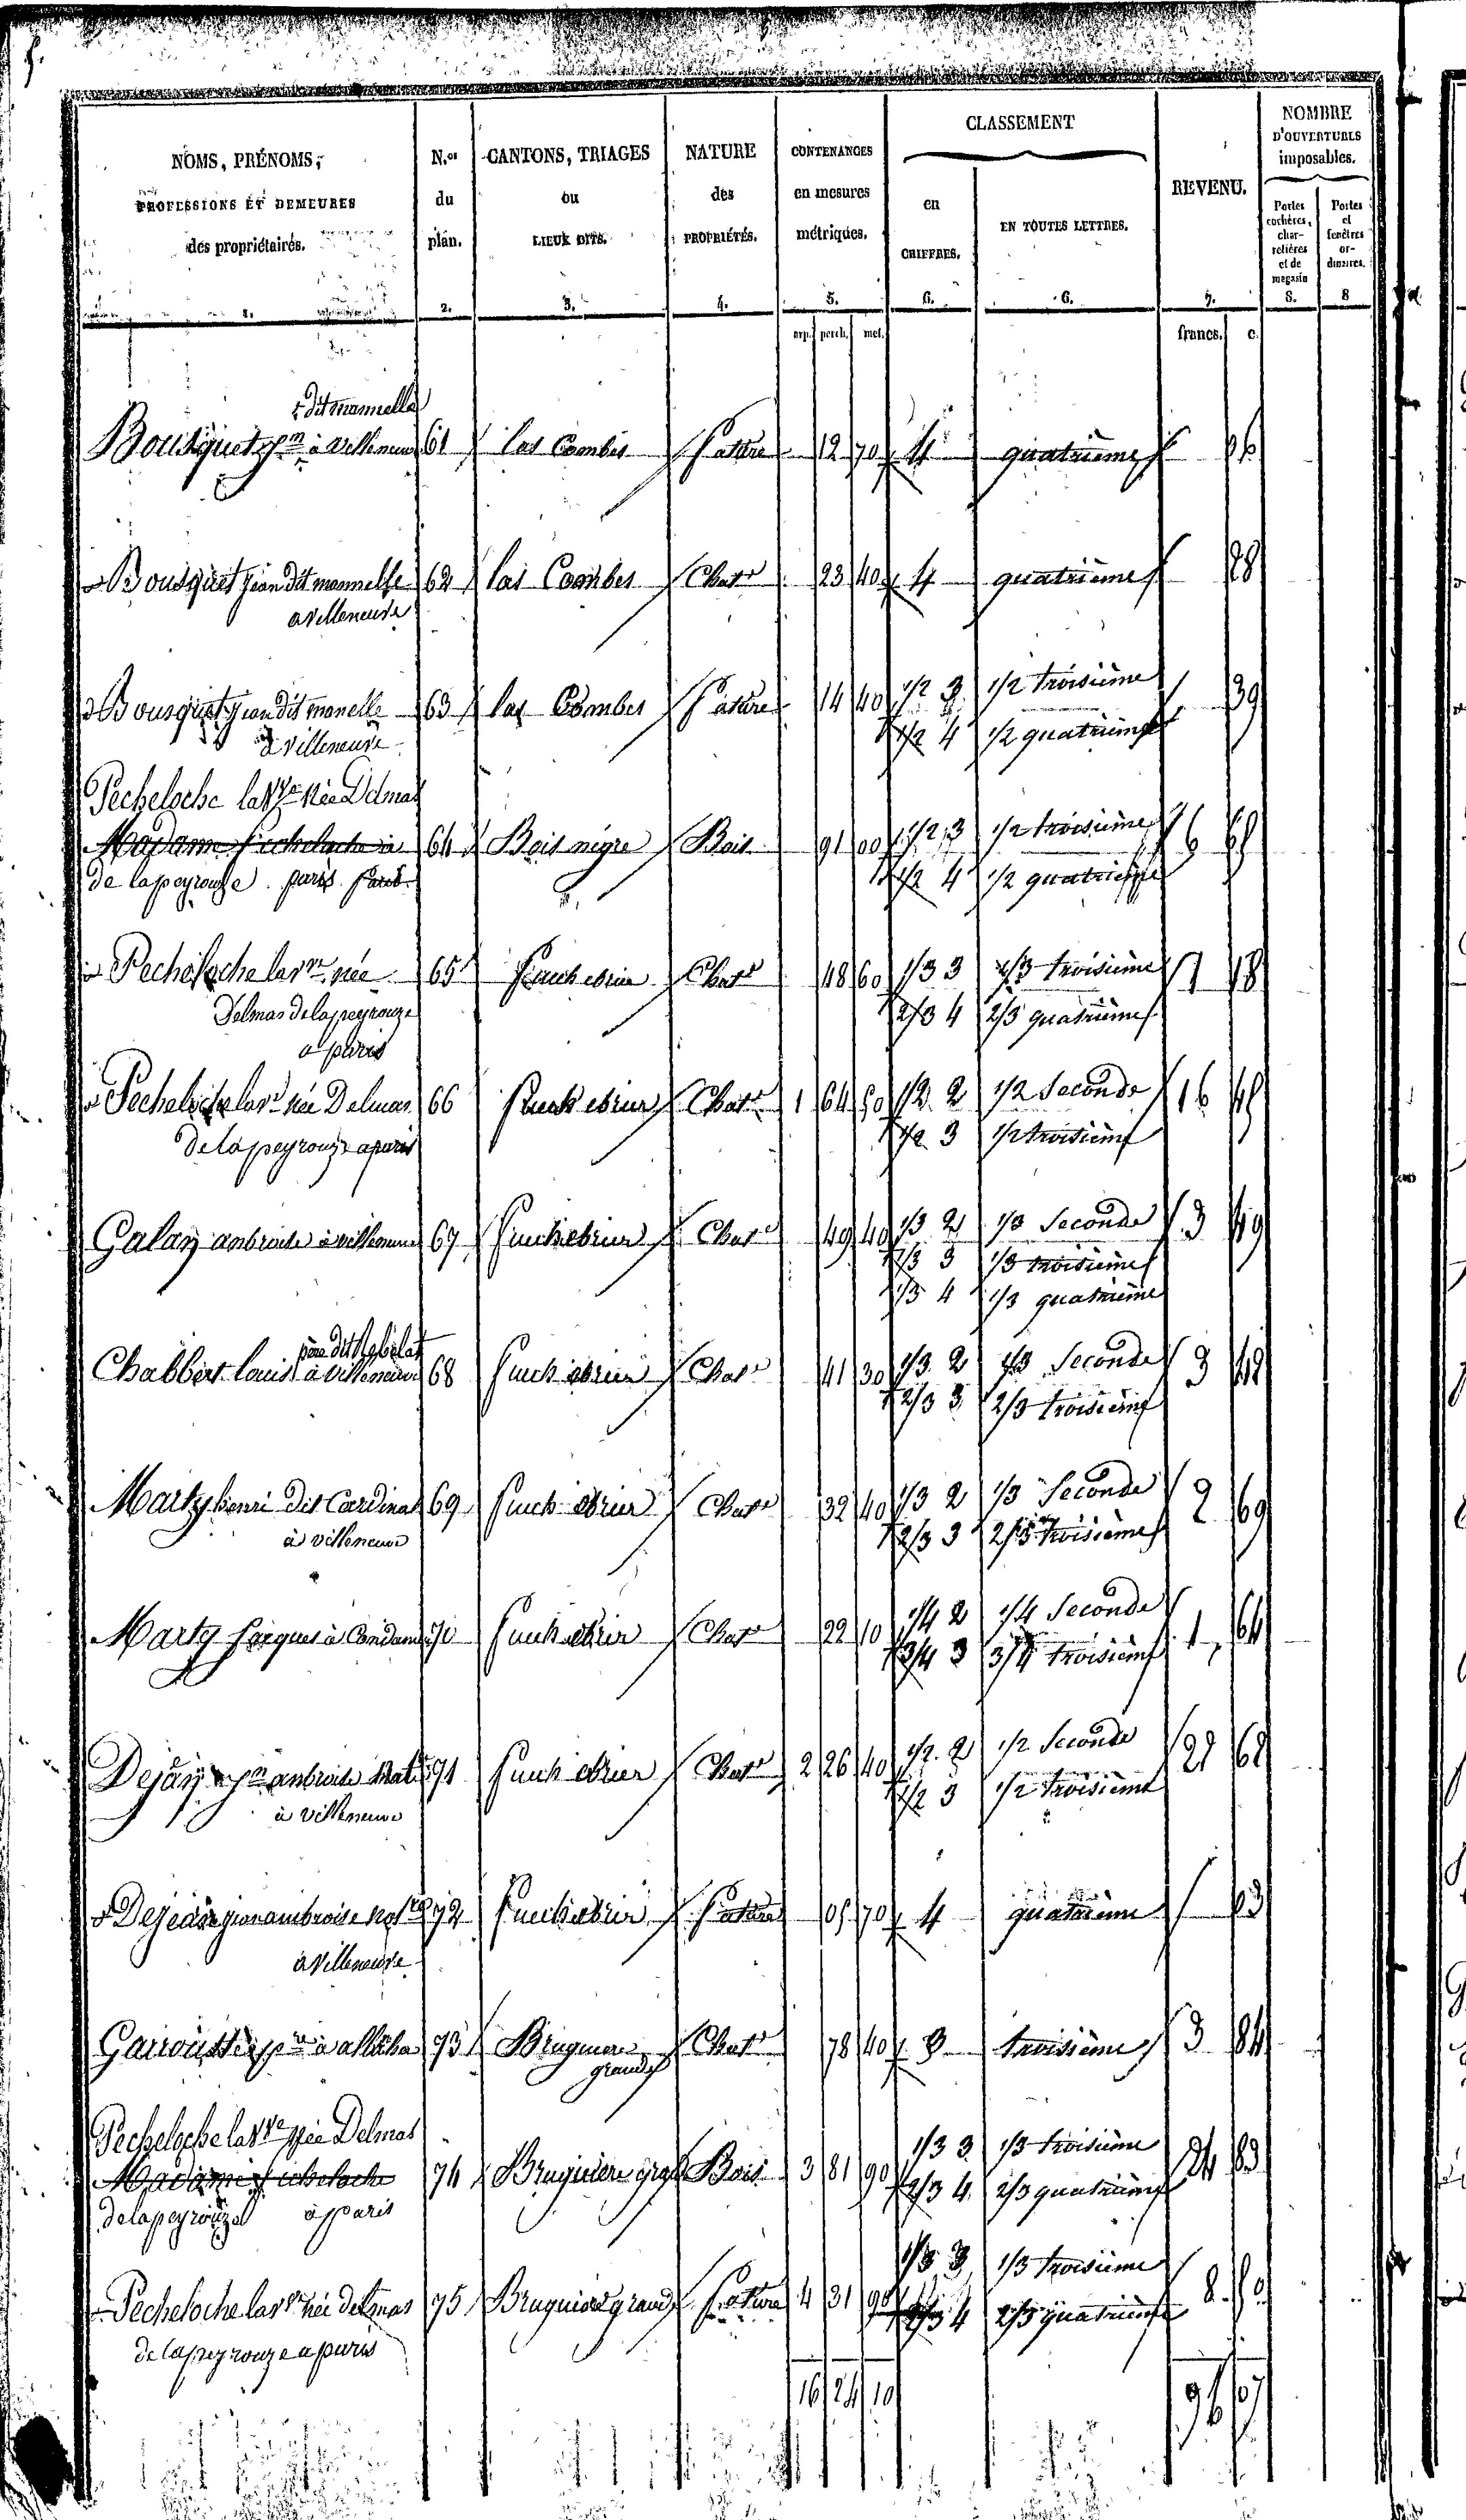 CLASSEMENT
NOMBRE D'OUVERTURES imposables.
NOMS, PRÉNOMS, PROFESSIONS ET DEMEURES des propriétaires.
N.os du plan.
CANTONS, TRIAGES ou LIEUX DITS.
NATURE des PROPRIÉTÉS.
CONTENANCES en mesures métriques.
en CHIFFRES.
EN TOUTES LETTRES.
REVENU.
Portes cochères, charretières et de magasin
Portes et fenêtres ordinaires.
1. 2. 3. 4. 5. 6. 6. 7. 8. 8
arp. perch. met. francs. c.
dit mamelle
Bousquet à Villeneuve 61 las Combes Pature 12 70 4 quatrième 26
Bousquet jean dit mamelle 62 las Combes Chat 23 40 4 quatrième 28
a villeneuve
Bousquet jean dit manelle 63 las Combes Pature 14 40 1/2 3 1/2 troisième 39
à Villeneuve 1/2 4 1/2 quatrième
Pecheloche la Ve née Delmas
Madame Pecheloche à 64 Bois nègre Bois 91 00 1/2 3 1/2 troisième 6
de lapeyrouse paris 1/2 4 1/2 quatrième
Pecheloche la ve née 65 Chat 48 60 1/3 3 1/3 troisième 1 18
Delmas delapeyrouze 2/3 4 2/3 quatrième
a paris
Pecheloche la ve née Delmas 66 Chat 1 64 50 1/2 2 1/2 Seconde 16 45
de lapeyrouze a paris 1/2 3 1/2 troisième
Galan 67 Chat 49 40 1/3 2 1/3 Seconde 3 49
1/3 3 1/3 troisième
1/3 4 1/3 quatrième
père dit
Chabbert louis à Villeneuve 68 Chat 41 30 1/3 2 1/3 Seconde 3 42
2/3 3 2/3 troisième
Marty henri dit Cardinal 69 Chat 32 40 1/3 2 1/3 Seconde 2 69
à Villeneuve 2/3 3 2/3 troisième
Marty jacques à 70 Chat 22 10 1/4 2 1/4 Seconde 1 64
3/4 3 3/4 troisième
Dejean 71 Chat 2 26 40 1/2 2 1/2 Seconde 22 62
à Villeneuve 1/2 3 1/2 troisième
Dejean jean ambroise not re 72 Pature 05 70 4 quatrième 
à Villeneuve
73 Bruguiere Chat 78 40 3 troisième 3 84
grande
Pecheloche la Ve née Delmas
Madame Pecheloche 74 Bruguiere grde Bois 3 81 90 1/3 3 1/3 troisième 24 83
delapeyrouze à paris 2/3 4 2/3 quatrième
Pecheloche la ve née delmas 75 Bruguiere grande Pature 4 31 90 1/3 3 1/3 troisième
de lapeyrouze a paris 2/3 4 2/3 quatrième
16 24 10 96